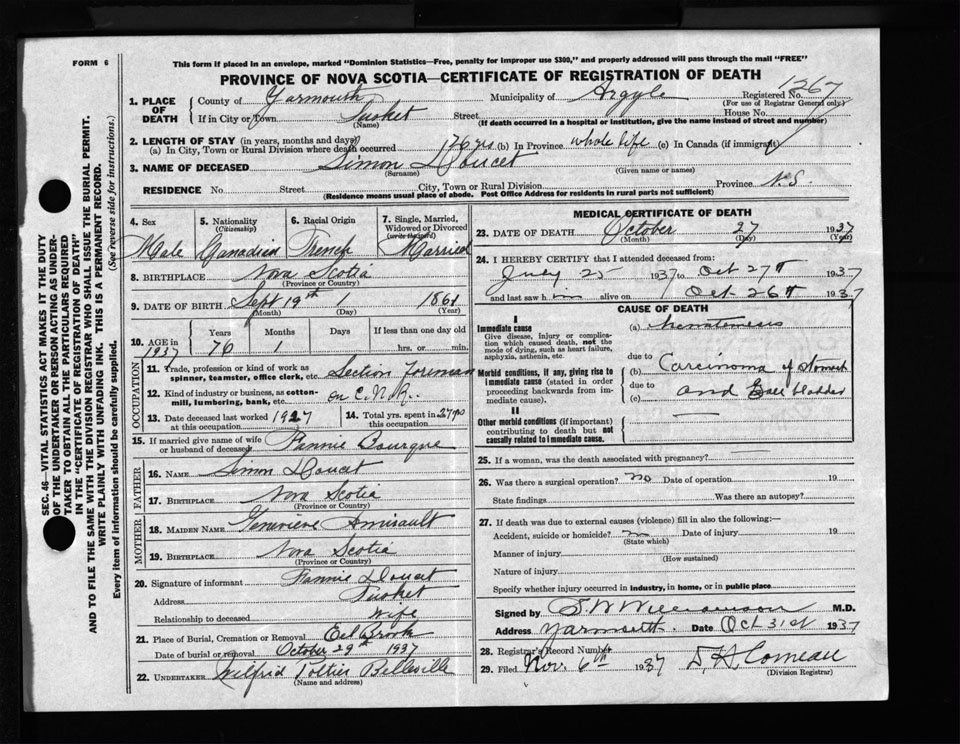 FORM 6
This form if placed in an envelope, marked "Dominion Statistics—Free, penalty for improper use $300," and properly addressed will pass through the mail "FREE"
PROVINCE OF NOVA SCOTIA—CERTIFICATE OF REGISTRATION OF DEATH
1267
1. PLACE OF DEATH
County of Yarmouth Municipality of Argyle Registered No.
(For use of Registrar General only)
If in City or Town Tusket Street House No.
(Name) (If death occurred in a hospital or institution, give the name instead of street and number)
2. LENGTH OF STAY (in years, months and days)
(a) In City, Town or Rural Division where death occurred 76 yrs (b) In Province whole life (c) In Canada (if immigrant)
3. NAME OF DECEASED Simon Doucet
(Surname) (Given name or names)
RESIDENCE No. Street City, Town or Rural Division Province N.S.
(Residence means usual place of abode. Post Office Address for residents in rural parts not sufficient)
4. Sex 5. Nationality (Citizenship) 6. Racial Origin 7. Single, Married, Widowed or Divorced (write the word)
Male Canadian French Married
8. BIRTHPLACE Nova Scotia
(Province or Country)
9. DATE OF BIRTH Sept 19th 1 1861
(Month) (Day) (Year)
10. AGE in 1937 Years Months Days If less than one day old
76 1 hrs. or min.
OCCUPATION
11. Trade, profession or kind of work as spinner, teamster, office clerk, etc. Section Foreman
12. Kind of industry or business, as cotton-mill, lumbering, bank, etc. on C.N.R.
13. Date deceased last worked at this occupation 1927 14. Total yrs. spent in this occupation
15. If married give name of wife or husband of deceased Fannie Bourque
FATHER
16. NAME Simon Doucet
17. BIRTHPLACE Nova Scotia
(Province or Country)
MOTHER
18. MAIDEN NAME Genevieve Amirault
19. BIRTHPLACE Nova Scotia
(Province or Country)
20. Signature of informant Fannie Doucet
Address Tusket
Relationship to deceased Wife
21. Place of Burial, Cremation or Removal Eel Brook
Date of burial or removal October 29th 1937
22. UNDERTAKER Wilfrid Pottier Belleville
(Name and address)
MEDICAL CERTIFICATE OF DEATH
23. DATE OF DEATH October 27 1937
(Month) (Day) (Year)
24. I HEREBY CERTIFY that I attended deceased from:
July 25 1937 to Oct 27th 1937
and last saw him alive on Oct 26th 1937
CAUSE OF DEATH
I
Immediate cause
Give disease, injury or complication which caused death, not the mode of dying, such as heart failure, asphyxia, asthenia, etc.
(a)
due to
Morbid conditions, if any, giving rise to immediate cause (stated in order proceeding backwards from immediate cause).
(b) Carcinoma of Stomach
due to and Gall bladder
(c)
II
Other morbid conditions (if important) contributing to death but not causally related to immediate cause.
25. If a woman, was the death associated with pregnancy?
26. Was there a surgical operation? no Date of operation 19
State findings Was there an autopsy?
27. If death was due to external causes (violence) fill in also the following:—
Accident, suicide or homicide? Date of injury 19
(State which)
Manner of injury
(How sustained)
Nature of injury
Specify whether injury occurred in industry, in home, or in public place
Signed by S W Williamson M.D.
Address Yarmouth. Date Oct 31st 1937
28. Registrar's Record Number
29. Filed Nov. 6th 1937 Comeau
(Division Registrar)
SEC. 46—VITAL STATISTICS ACT MAKES IT THE DUTY
OF THE UNDERTAKER OR PERSON ACTING AS UNDER-
TAKER TO OBTAIN ALL THE PARTICULARS REQUIRED
IN THE "CERTIFICATE OF REGISTRATION OF DEATH"
AND TO FILE THE SAME WITH THE DIVISION REGISTRAR WHO SHALL ISSUE THE BURIAL PERMIT.
WRITE PLAINLY WITH UNFADING INK. THIS IS A PERMANENT RECORD.
Every item of information should be carefully supplied. (See reverse side for instructions.)